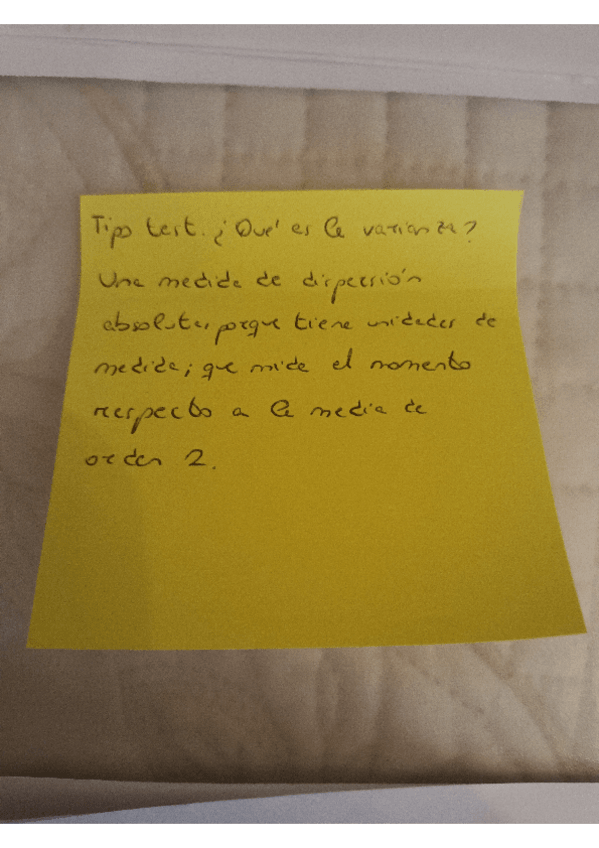 Tipo test. ¿Qué es la varianza?
Una medida de dispersión
absoluta, porque tiene unidades de
medida; que mide el momento
respecto a la media de
orden 2.